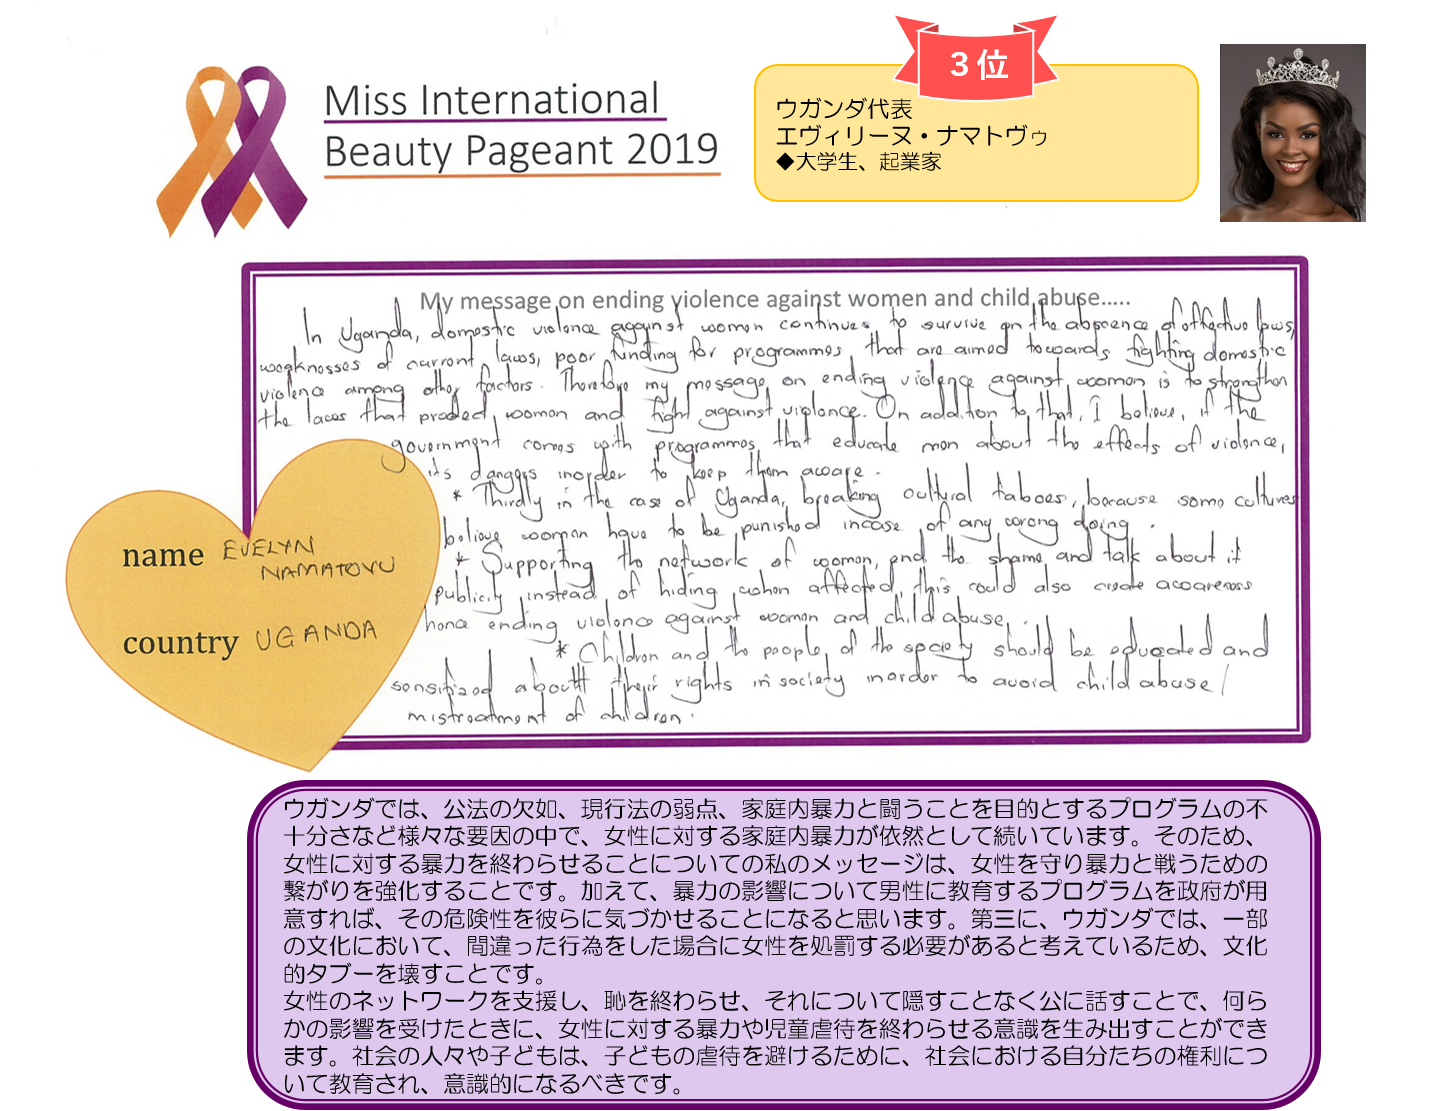 Miss International
Beauty Pageant 2019
3位
ウガンダ代表
エヴィリーヌ・ナマトヴゥ
◆大学生、起業家
My message on ending violence against women and child abuse.....
In Uganda, domestic violence against women continues to survive on the abscence of effective laws,
weaknesses of current laws, poor funding for programmes that are aimed towards fighting domestic
violence among other factors. Therefore my message on ending violence against women is to strengthen
the laws that protect women and fight against violence. On addition to that, I believe, if the
government comes with programmes that educate men about the effects of violence,
its dangers inorder to keep them aware.
* Thirdly in the case of Uganda, breaking cultural taboes, because some cultures
believe woman have to be punished incase of any wrong doing.
* Supporting the network of women, end the shame and talk about it
publicly instead of hiding when affected, this could also create awareness
hence ending violence against women and child abuse.
* Children and the people of the society should be educated and
sensitized about their rights in society inorder to avoid child abuse/
mistreatment of children.
name EVELYN
NAMATOVU
country UGANDA
ウガンダでは、公法の欠如、現行法の弱点、家庭内暴力と闘うことを目的とするプログラムの不
十分さなど様々な要因の中で、女性に対する家庭内暴力が依然として続いています。そのため、
女性に対する暴力を終わらせることについての私のメッセージは、女性を守り暴力と戦うための
繋がりを強化することです。加えて、暴力の影響について男性に教育するプログラムを政府が用
意すれば、その危険性を彼らに気づかせることになると思います。第三に、ウガンダでは、一部
の文化において、間違った行為をした場合に女性を処罰する必要があると考えているため、文化
的タブーを壊すことです。
女性のネットワークを支援し、恥を終わらせ、それについて隠すことなく公に話すことで、何ら
かの影響を受けたときに、女性に対する暴力や児童虐待を終わらせる意識を生み出すことができ
ます。社会の人々や子どもは、子どもの虐待を避けるために、社会における自分たちの権利につ
いて教育され、意識的になるべきです。